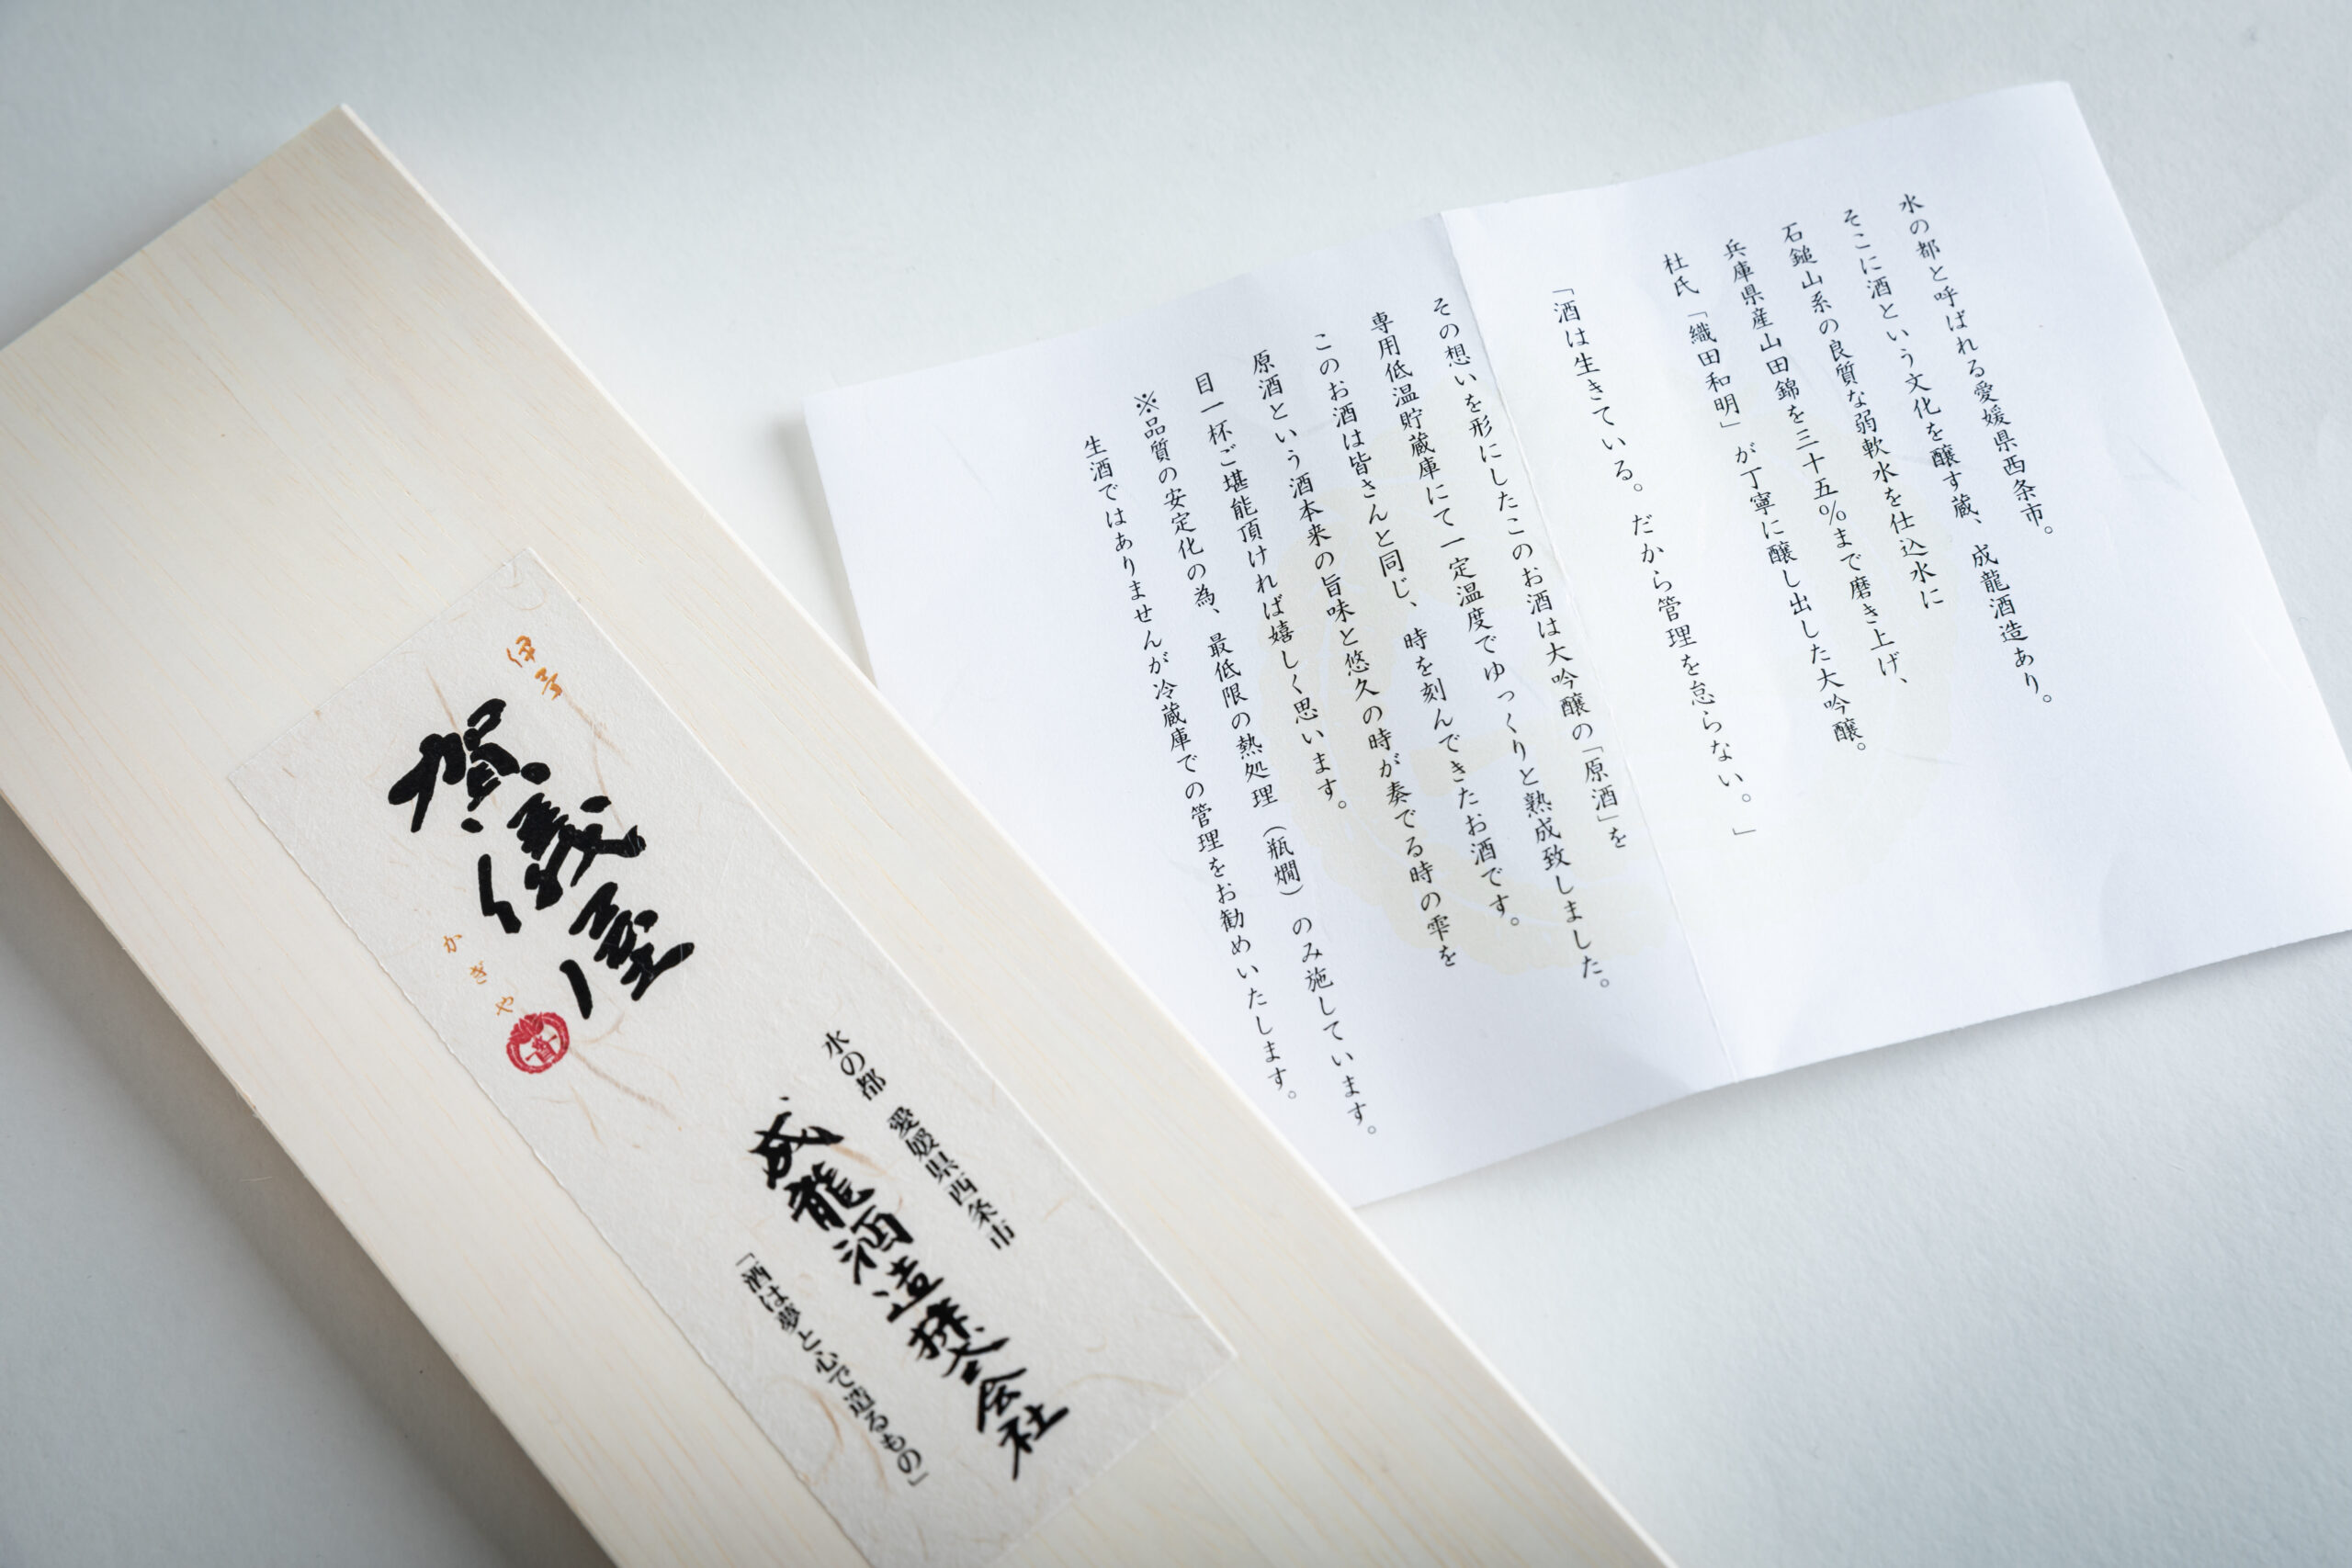 水の都と呼ばれる愛媛県西条市。
そこに酒という文化を醸す蔵、成龍酒造あり。
石鎚山系の良質な弱軟水を仕込水に
兵庫県産山田錦を三十五%まで磨き上げ、
杜氏「織田和明」が丁寧に醸し出した大吟醸。
「酒は生きている。だから管理を怠らない。」
その想いを形にしたこのお酒は大吟醸の「原酒」を
専用低温貯蔵庫にて一定温度でゆっくりと熟成致しました。
このお酒は皆さんと同じ、時を刻んできたお酒です。
原酒という酒本来の旨味と悠久の時が奏でる時の雫を
目一杯ご堪能頂ければ嬉しく思います。
※品質の安定化の為、最低限の熱処理(瓶燗)のみ施しています。
生酒ではありませんが冷蔵庫での管理をお勧めいたします。
伊予
賀儀屋
かぎや
水の都 愛媛県西条市
成龍酒造株式会社
「酒は夢と心で造るもの」